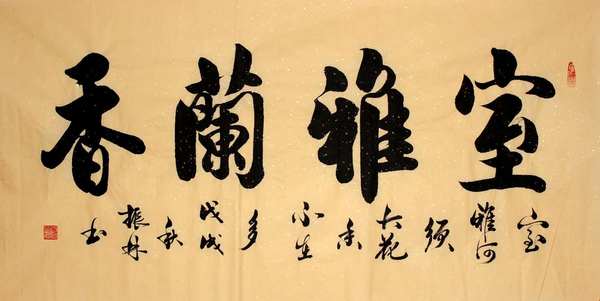 室雅蘭香
室雅何须大花香不在多戊戌秋振林书